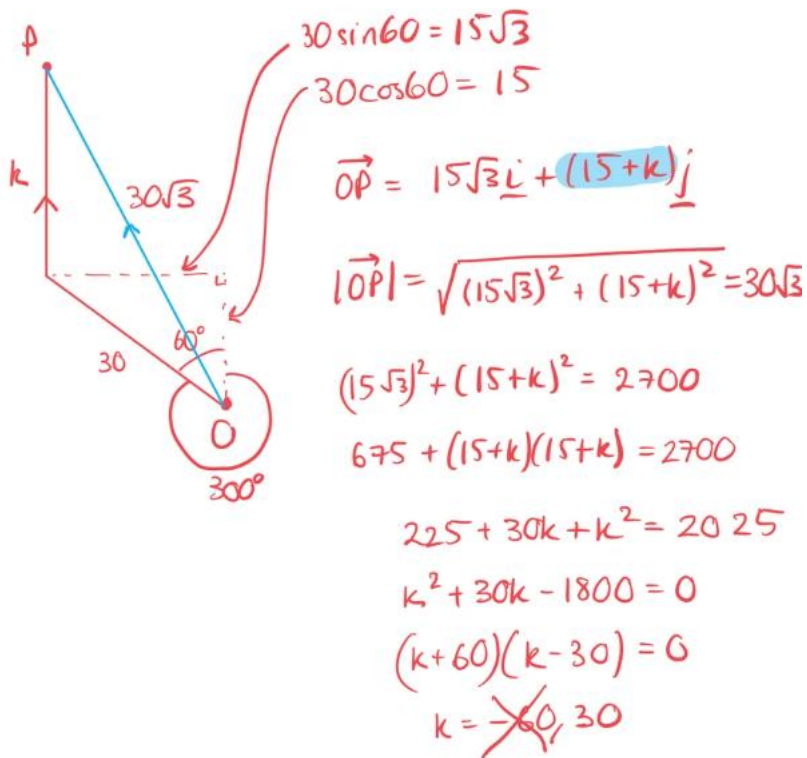 30sin60 = 15√3
30cos60 = 15
P
k
30√3
60°
30
O
300°
OP→ = 15√3 i + (15+k) j
|OP→| = √((15√3)² + (15+k)²) = 30√3
(15√3)² + (15+k)² = 2700
675 + (15+k)(15+k) = 2700
225 + 30k + k² = 2025
k² + 30k - 1800 = 0
(k+60)(k-30) = 0
k = -60, 30